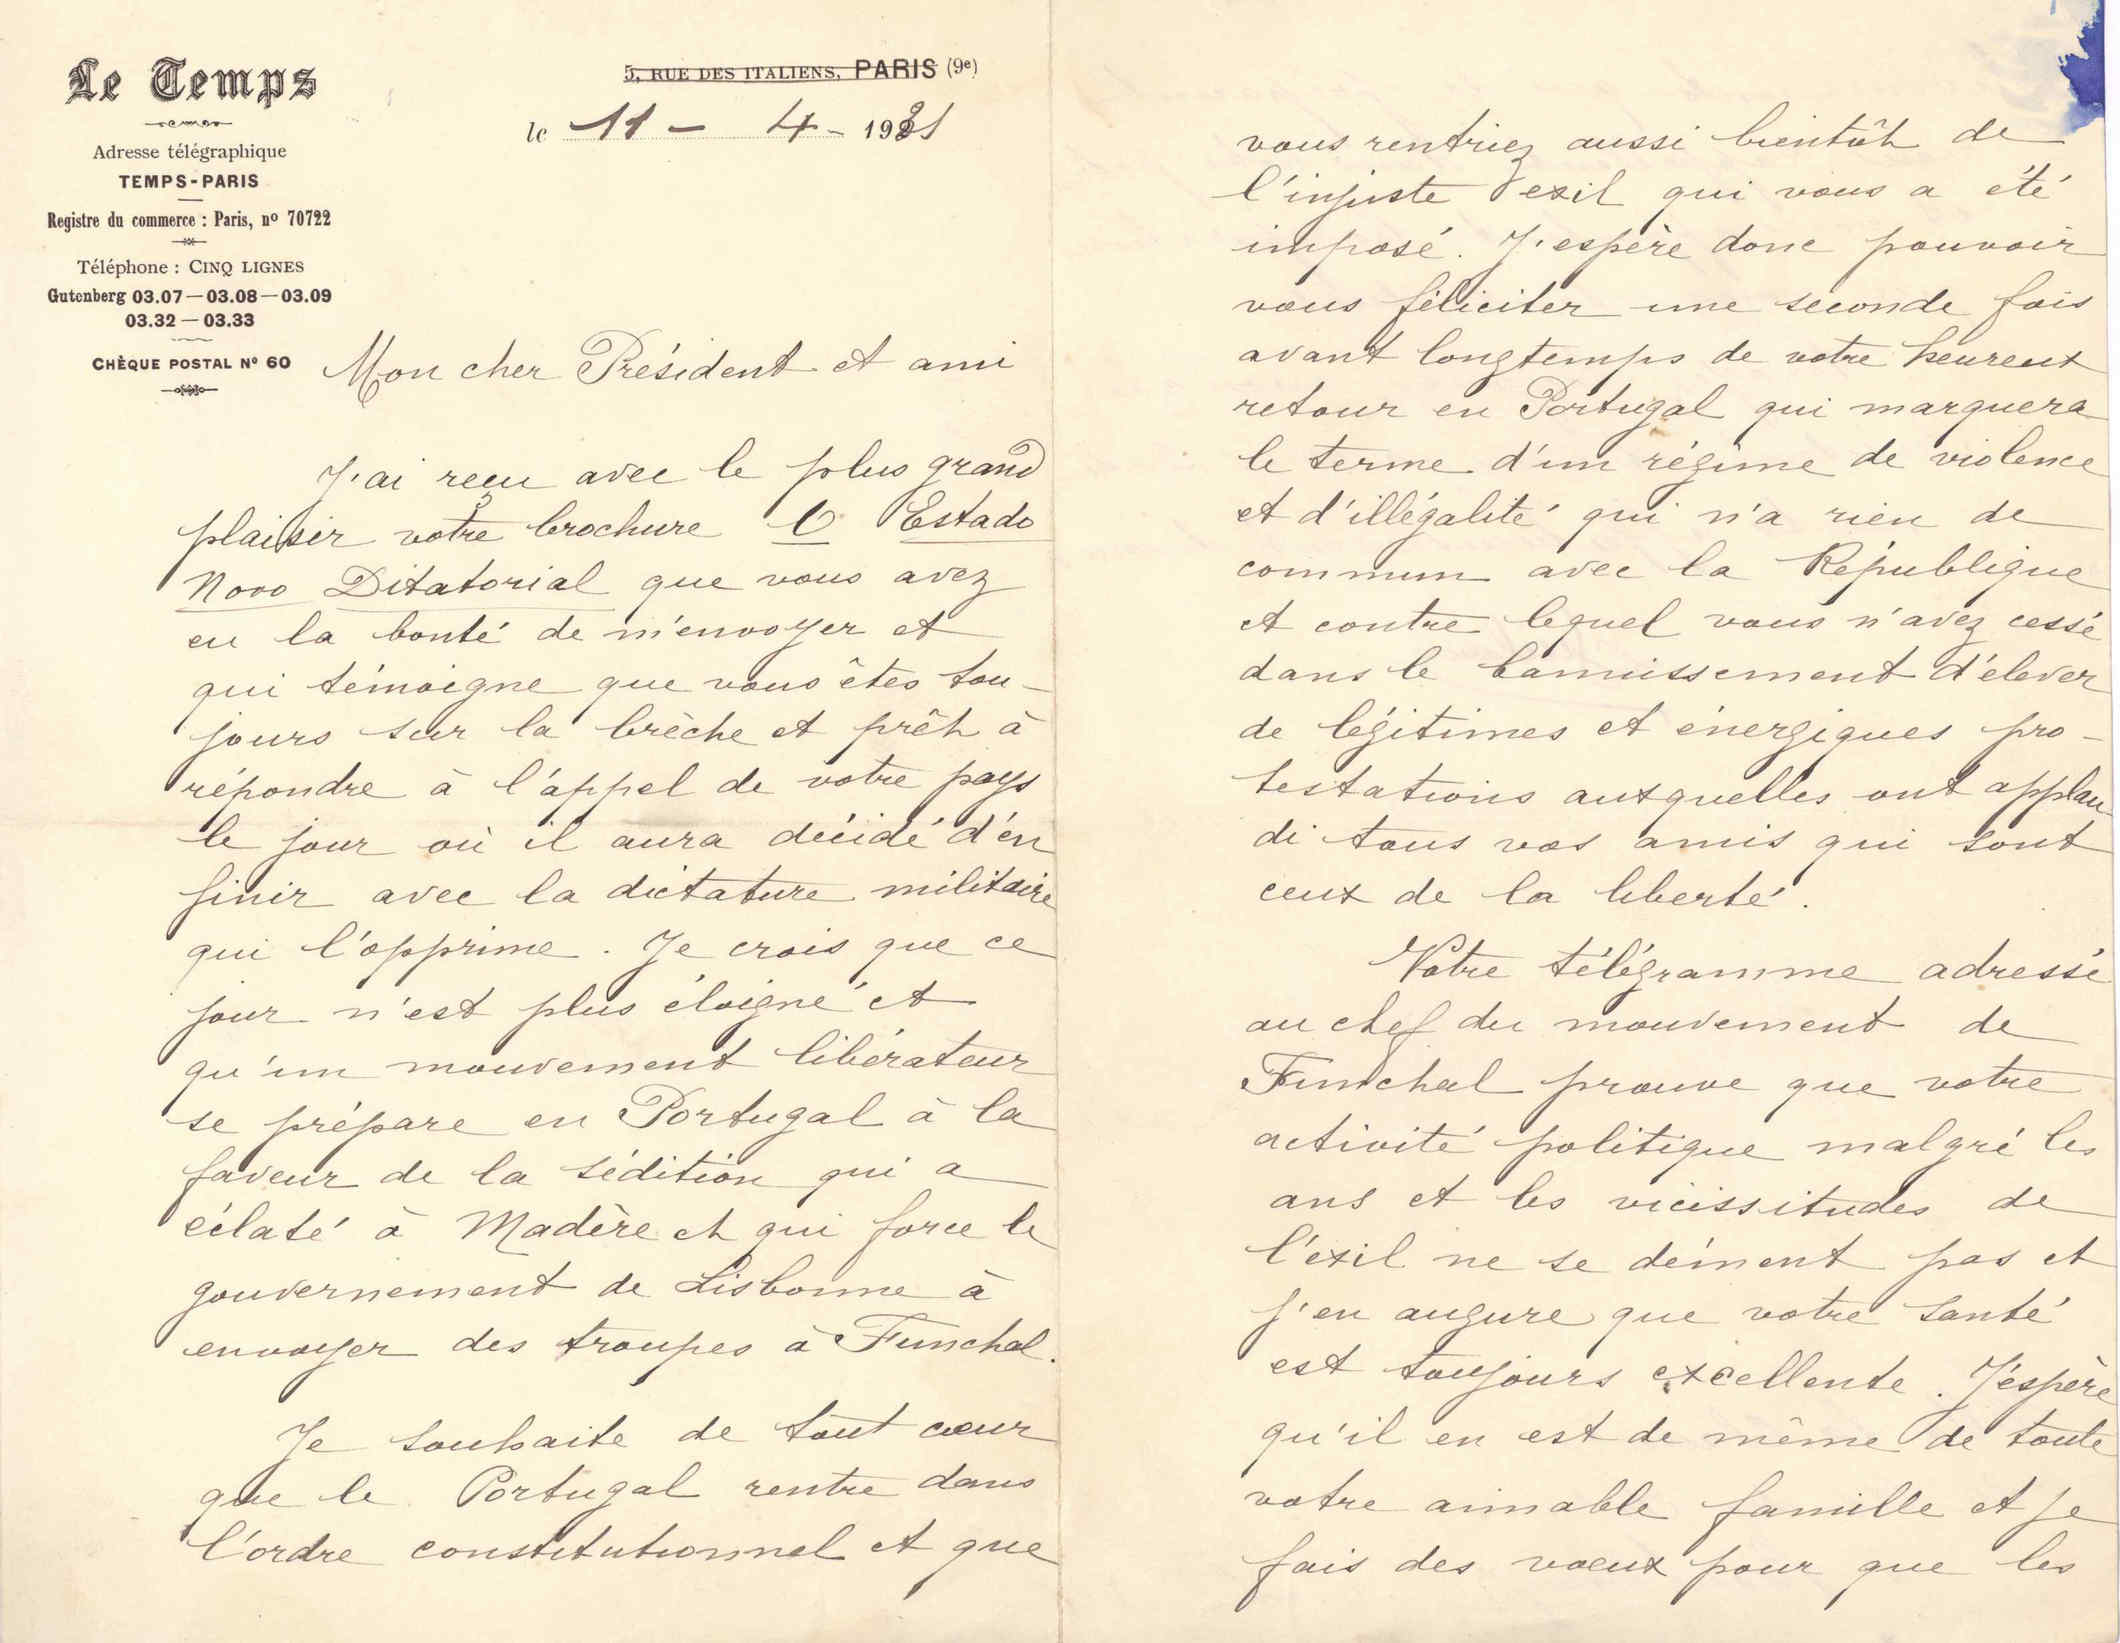 Le Temps
Adresse télégraphique
TEMPS-PARIS
Registre du commerce : Paris, nº 70722
Téléphone : CINQ LIGNES
Gutenberg 03.07 — 03.08 — 03.09
03.32 — 03.33
CHÈQUE POSTAL Nº 60
5, RUE DES ITALIENS, PARIS (9e)
le 11 - 4 - 1931
Mon cher Président et ami
J'ai reçu avec le plus grand
plaisir votre brochure O Estado
Novo Ditatorial que vous avez
eu la bonté de m'envoyer et
qui témoigne que vous êtes tou-
jours sur la brèche et prêt à
répondre à l'appel de votre pays
le jour où il aura décidé d'en
finir avec la dictature militaire
qui l'opprime. Je crois que ce
jour n'est plus éloigné et
qu'un mouvement libérateur
se prépare en Portugal à la
faveur de la sédition qui a
éclaté à Madère et qui force le
gouvernement de Lisbonne à
envoyer des troupes à Funchal.
Je souhaite de tout cœur
que le Portugal rentre dans
l'ordre constitutionnel et que
vous rentriez aussi bientôt de
l'injuste exil qui vous a été
imposé. J'espère donc pouvoir
vous féliciter une seconde fois
avant longtemps de votre heureux
retour en Portugal qui marquera
le terme d'un régime de violence
et d'illégalité qui n'a rien de
commun avec la République
et contre lequel vous n'avez cessé
dans le bannissement d'élever
de légitimes et énergiques pro-
testations auxquelles ont applau
di tous vos amis qui sont
ceux de la liberté.
Votre télégramme adressé
au chef du mouvement de
Funchal prouve que votre
activité politique malgré les
ans et les vicissitudes de
l'exil ne se dément pas et
j'en augure que votre santé
est toujours excellente. J'espère
qu'il en est de même de toute
votre aimable famille et je
fais des vœux pour que les